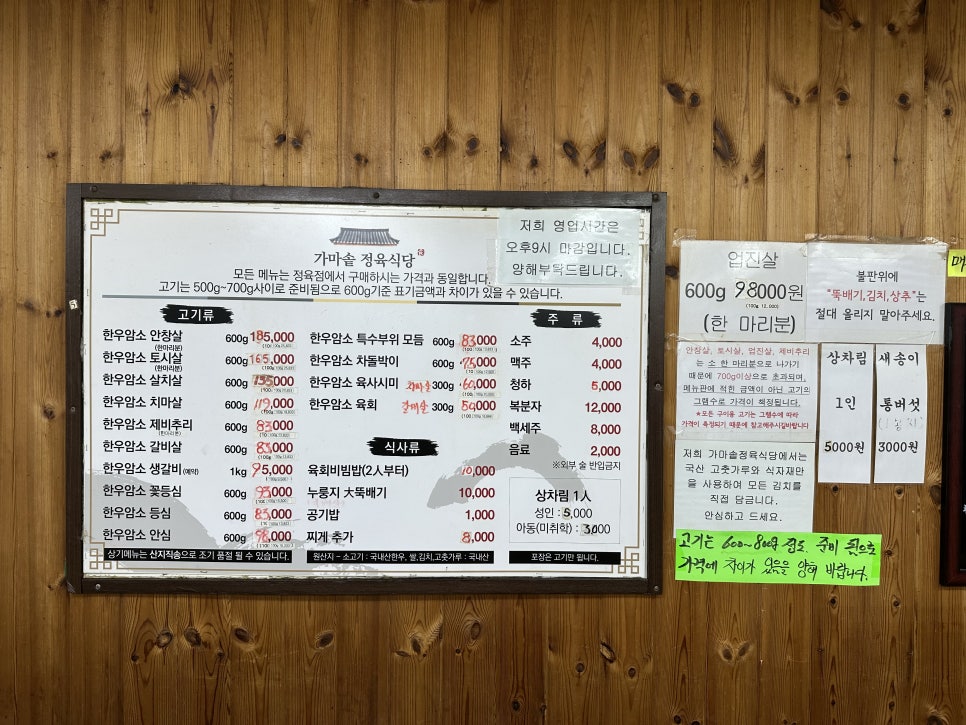 가마솥 정육식당
모든 메뉴는 정육점에서 구매하시는 가격과 동일합니다.
고기는 500g~700g사이로 준비됨으로 600g기준 표기금액과 차이가 있을 수 있습니다.
저희 영업시간은
오후9시 마감입니다.
양해부탁드립니다.
고기류
한우암소 안창살 600g 185,000
(한마리분)
한우암소 토시살 600g 165,000
(한마리분)
한우암소 살치살 600g
한우암소 치마살 600g 119,000
한우암소 제비추리 600g 83,000
(한마리분)
한우암소 갈비살 600g 83,000
한우암소 생갈비 (예약) 1kg 95,000
한우암소 꽃등심 600g 93,000
한우암소 등심 600g 83,000
한우암소 안심 600g 98,000
상기메뉴는 산지직송으로 조기 품절 될 수 있습니다.
한우암소 특수부위 모듬 600g 83,000
한우암소 차돌박이 600g 75,000
한우암소 육사시미 300g 60,000
한우암소 육회 300g 50,000
식사류
육회비빔밥(2人부터) 10,000
누룽지 大뚝배기 10,000
공기밥 1,000
찌개 추가 8,000
원산지 - 소고기 : 국내산한우, 쌀,김치,고춧가루 : 국내산
주 류
소주 4,000
맥주 4,000
청하 5,000
복분자 12,000
백세주 8,000
음료 2,000
※외부 술 반입금지
상차림 1人
성인 : 5,000
아동(미취학) : 3,000
포장은 고기만 됩니다.
업진살
600g 98000원
(100g 12,000)
(한 마리분)
불판위에
"뚝배기,김치,상추"는
절대 올리지 말아주세요.
안창살, 토시살, 업진살, 제비추리
는 소 한 마리분으로 나가기
때문에 700g이상으로 초과되며,
메뉴판에 적힌 금액이 아닌 고기의
그램수로 가격이 책정됩니다.
★모든 구이용 고기는 그램수에 따라
가격이 측정되기 때문에 참고해주시길바랍니다
상차림
1인
5000원
새송이
통버섯
3000원
저희 가마솥정육식당에서는
국산 고춧가루와 식자재만
을 사용하여 모든 김치를
직접 담금니다.
안심하고 드세요.
고기는 600~800g 정도 준비 됨으로
가격에 차이가 있음을 양해 바랍니다.